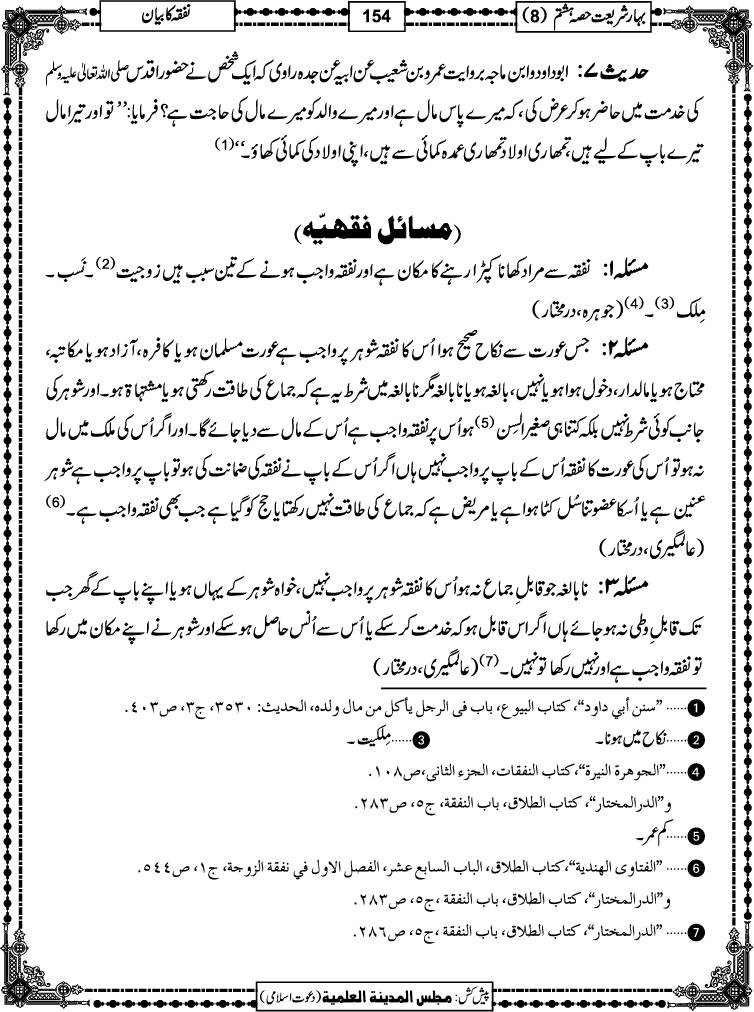 بہار شریعت حصہ ہشتم (8)
154
نفقہ کا بیان
حدیث ۷: ابو داود و ابن ماجہ بروایت عمرو بن شعیب عن ابیہ عن جدہ راوی کہ ایک شخص نے حضور اقدس صلی اللہ تعالیٰ علیہ وسلم
کی خدمت میں حاضر ہو کر عرض کی، کہ میرے پاس مال ہے اور میرے والد کو میرے مال کی حاجت ہے؟ فرمایا: ’’تو اور تیرا مال
تیرے باپ کے لیے ہیں، تمھاری اولاد تمھاری عمدہ کمائی سے ہیں، اپنی اولاد کی کمائی کھاؤ۔‘‘(1)
(مسائل فقھیّہ)
مسئلہ ۱: نفقہ سے مراد کھانا کپڑا رہنے کا مکان ہے اور نفقہ واجب ہونے کے تین سبب ہیں زوجیت(2)۔ نَسب۔
مِلک(3)۔(4)(جوہرہ، درمختار)
مسئلہ ۲: جس عورت سے نکاح صحیح ہوا اُس کا نفقہ شوہر پر واجب ہے عورت مسلمان ہو یا کافرہ، آزاد ہو یا مکاتبہ،
محتاج ہو یا مالدار، دخول ہوا ہو یا نہیں، بالغہ ہو یا نابالغہ مگر نابالغہ میں شرط یہ ہے کہ جماع کی طاقت رکھتی ہو یا مشتہاۃ ہو۔ اور شوہر کی
جانب کوئی شرط نہیں بلکہ کتنا ہی صغیر السِن(5) ہو اُس پر نفقہ واجب ہے اُس کے مال سے دیا جائے گا۔ اور اگر اُس کی ملک میں مال
نہ ہو تو اُس کی عورت کا نفقہ اُس کے باپ پر واجب نہیں ہاں اگر اُس کے باپ نے نفقہ کی ضمانت کی ہو تو باپ پر واجب ہے شوہر
عنین ہے یا اُسکا عضو تناسُل کٹا ہوا ہے یا مریض ہے کہ جماع کی طاقت نہیں رکھتا یا حج کو گیا ہے جب بھی نفقہ واجب ہے۔(6)
(عالمگیری، درمختار)
مسئلہ ۳: نابالغہ جو قابلِ جماع نہ ہو اُس کا نفقہ شوہر پر واجب نہیں، خواہ شوہر کے یہاں ہو یا اپنے باپ کے گھر جب
تک قابلِ وطی نہ ہو جائے ہاں اگر اس قابل ہو کہ خدمت کر سکے یا اُس سے اُنس حاصل ہو سکے اور شوہر نے اپنے مکان میں رکھا
تو نفقہ واجب ہے اور نہیں رکھا تو نہیں۔(7)(عالمگیری، درمختار)
1 ...... ”سنن أبي داود“، كتاب البيوع، باب في الرجل يأكل من مال ولده، الحديث: ۳۵۳۰، ج۳، ص۴۰۳.
2 ......نکاح میں ہونا۔ 3 ......مِلکیت۔
4 ......”الجوهرة النيرة“، كتاب النفقات، الجزء الثاني، ص۱۰۸.
و”الدرالمختار“، كتاب الطلاق، باب النفقة، ج۵، ص۲۸۳.
5 ......کم عمر۔
6 ...... ”الفتاوى الهندية“، كتاب الطلاق، الباب السابع عشر، الفصل الاول في نفقة الزوجة، ج۱، ص۵۴۴.
و”الدرالمختار“، كتاب الطلاق، باب النفقة، ج۵، ص۲۸۳.
7 ...... ”الدرالمختار“، كتاب الطلاق، باب النفقة، ج۵، ص۲۸۶.
پیش کش: مجلس المدینة العلمیة (دعوت اسلامی)